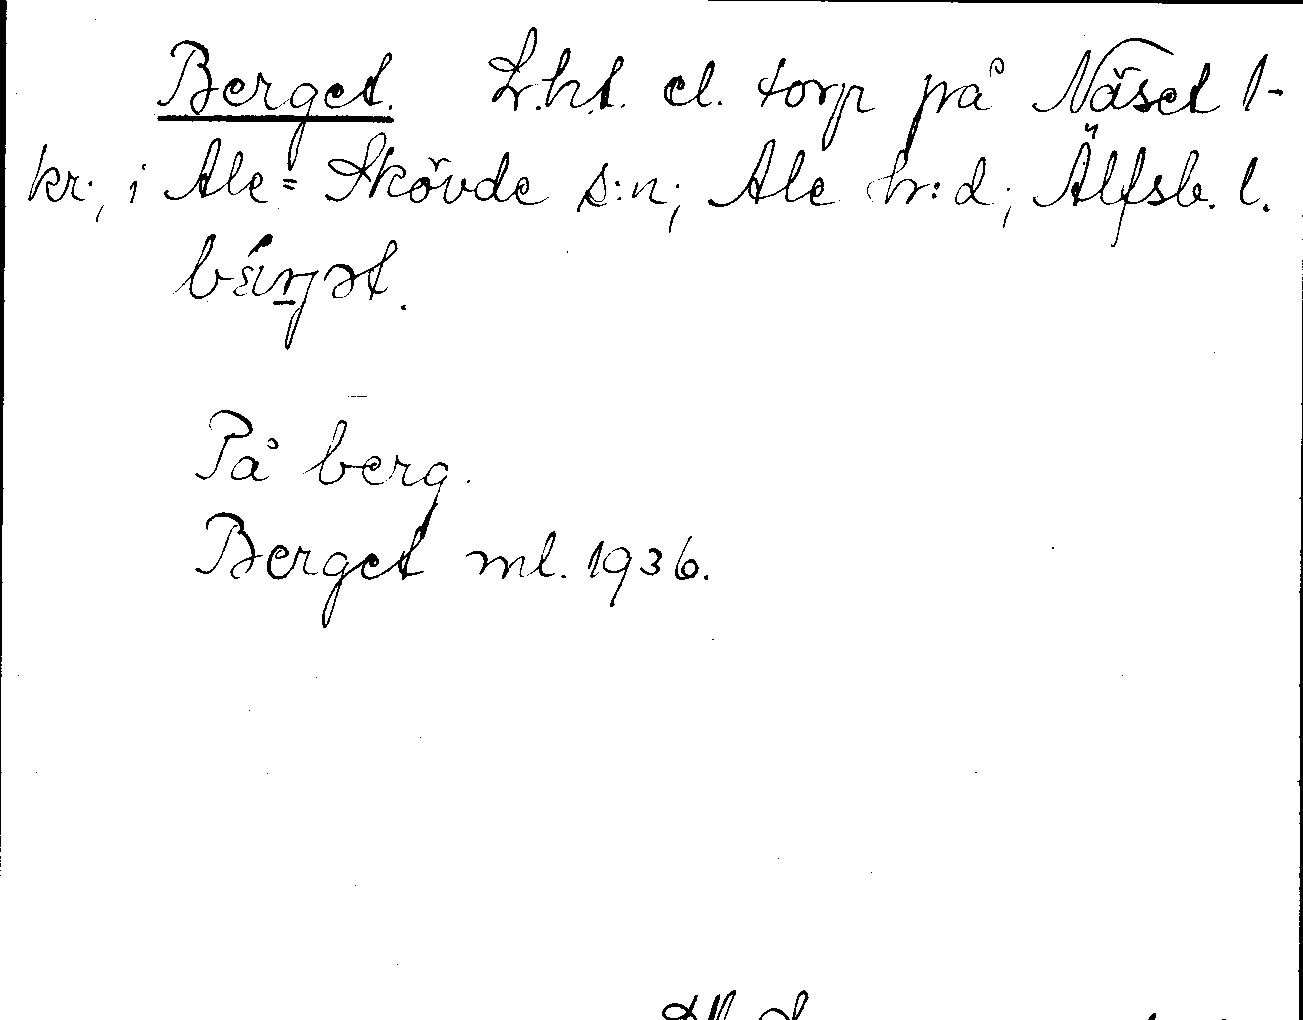 Berget. Lht. el. torp på Näset 1-
kr., i Ale-Skövde s:n; Ale hr:d; Älfsb. l.
På berg.
Berget ml. 1936.